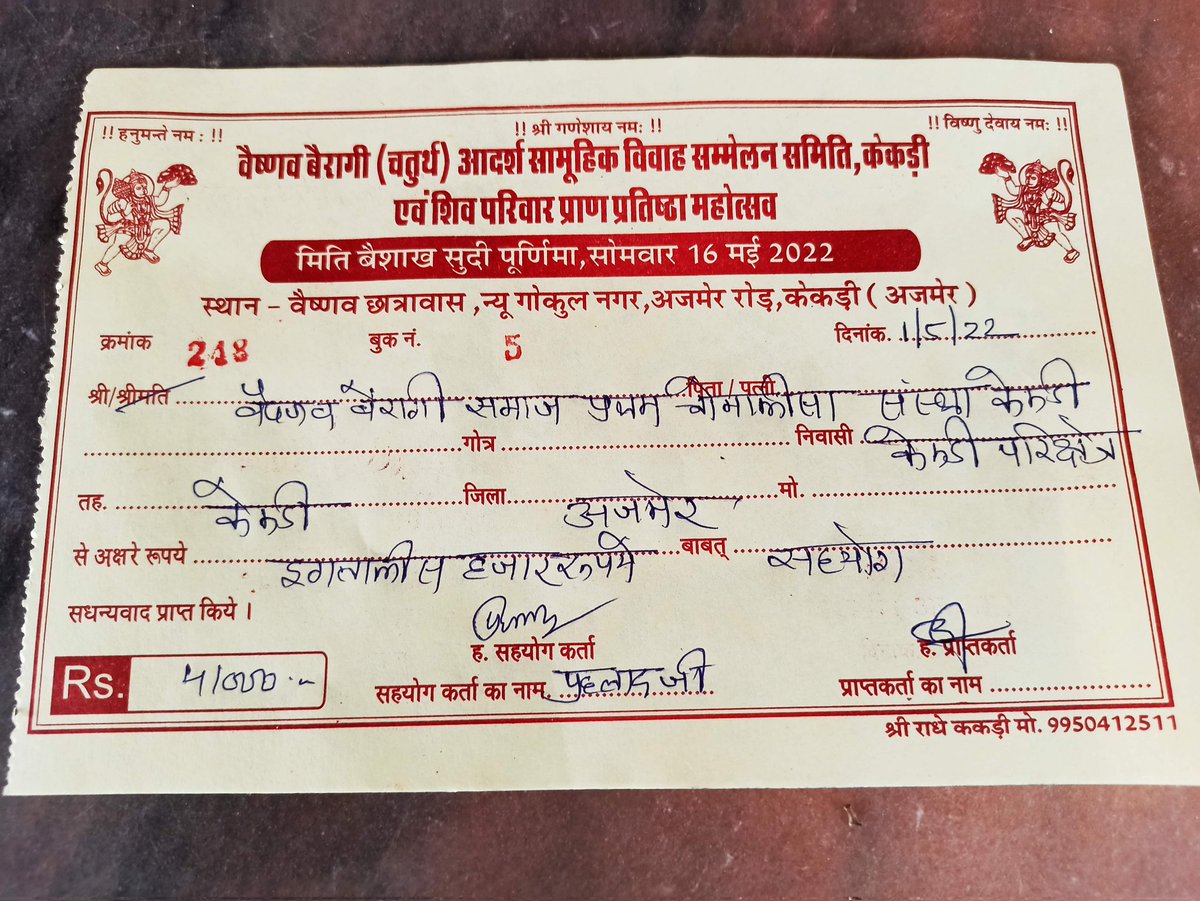 !! हनुमन्ते नमः !! !! श्री गणेशाय नमः !! !! विष्णु देवाय नमः !!
वैष्णव बैरागी (चतुर्थ) आदर्श सामूहिक विवाह सम्मेलन समिति,केकड़ी
एवं शिव परिवार प्राण प्रतिष्ठा महोत्सव
मिति बैशाख सुदी पूर्णिमा,सोमवार 16 मई 2022
स्थान - वैष्णव छात्रावास ,न्यू गोकुल नगर,अजमेर रोड़,केकड़ी ( अजमेर )
क्रमांक 248 बुक नं. 5 दिनांक. 1/5/22
श्री/श्रीमति वैष्णव बैरागी समाज प्रथम पिता / पत्नी संस्था केकडी
गोत्र निवासी केकडी परिक्षेत्र
तह. केकडी जिला अजमेर मो.
से अक्षरे रूपये इगतालीस हजार रूपये बाबत् सहयोग
सधन्यवाद प्राप्त किये ।
ह. सहयोग कर्ता ह. प्राप्तिकर्ता
Rs. 41000 सहयोग कर्ता का नाम. पहलाद जी प्राप्तकर्ता का नाम
श्री राधे ककड़ी मो. 9950412511